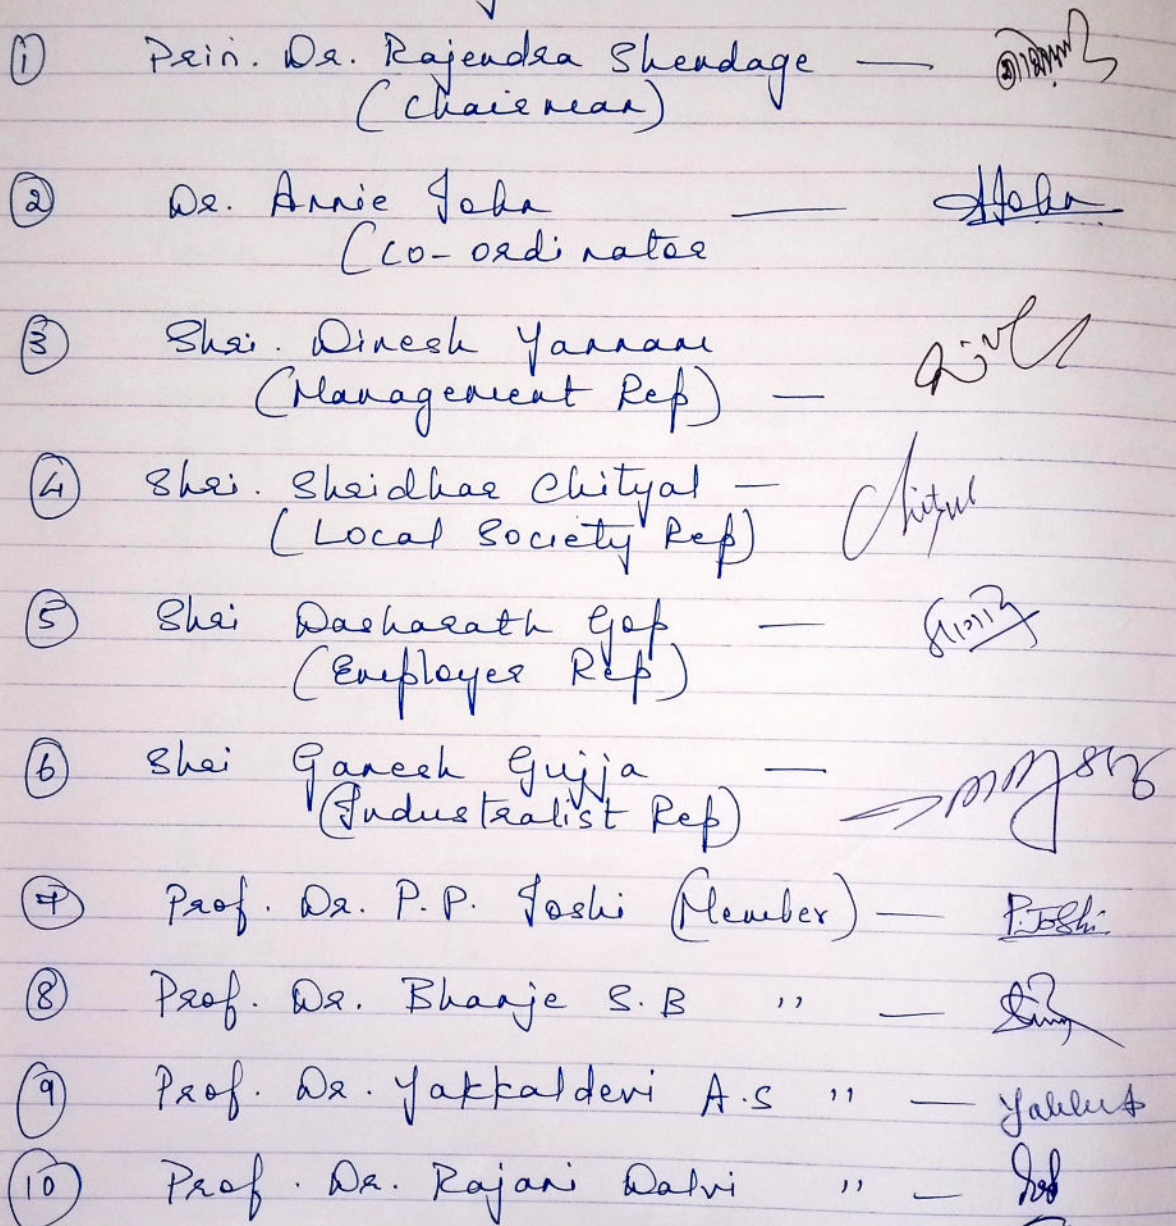 ① Prin. Dr. Rajendra Shendage —
(Chairman)
② Dr. Annie John — AJohn
(Co-ordinator
③ Shri. Dinesh Yannam
(Management Rep) —
④ Shri. Shridhar Chityal — Chityal
(Local Society Rep)
⑤ Shri Dasharath Gop —
(Employer Rep)
⑥ Shri Ganesh Gujja —
(Industralist Rep)
⑦ Prof. Dr. P.P. Joshi (Member) — P.Joshi
⑧ Prof. Dr. Bhanje S.B " —
⑨ Prof. Dr. Yakkaldevi A.S " —
⑩ Prof. Dr. Rajani Dalvi " —